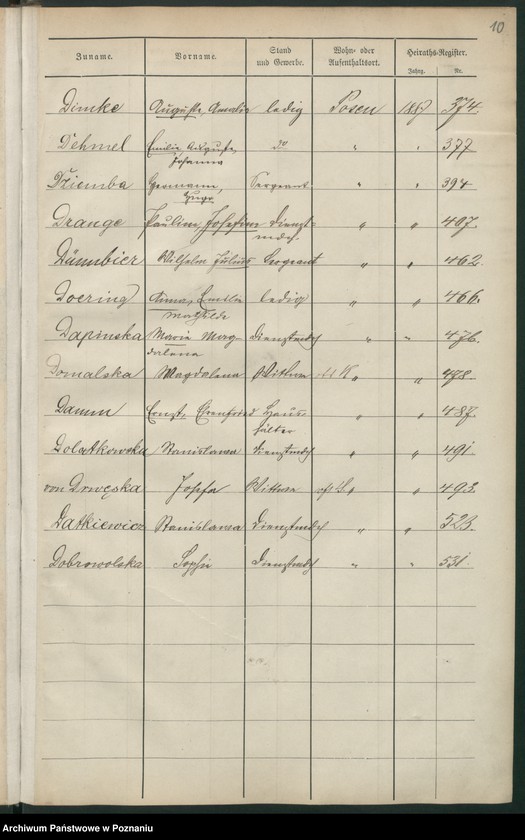 10
Zuname. Vorname. Stand und Gewerbe. Wohn- oder Aufenthaltsort. Heiraths-Register.
Jahrg. Nr.
Dimke Auguste, Amalie ledig Posen 1887 374.
Dehmel Emilie Auguste, do " " 377
Johanna
Dziemba Hermann, Sergeant " " 394
Hugo
Drange Pauline Josefine Dienst- " " 407.
mdch.
Dünnbier Wilhelm Julius Sergeant " " 462.
Doering Anna, Emilie ledig " " 466.
Mathilde
Dapinska Maria Mag- Dienstmdch " " 476.
dalena
Domalska Magdalena Wittwe " " 478.
Damm Ernst, Ehrenfried Haus- " " 487.
hälter
Dolatkowska Stanislawa Dienstmdch " " 491.
von Drwęska Josefa Wittwe " " 493.
Datkiewicz Stanislawa Dienstmdch " " 523.
Dobrowolska Sophie Dienstmdch " " 531.
Archiwum Państwowe w Poznaniu